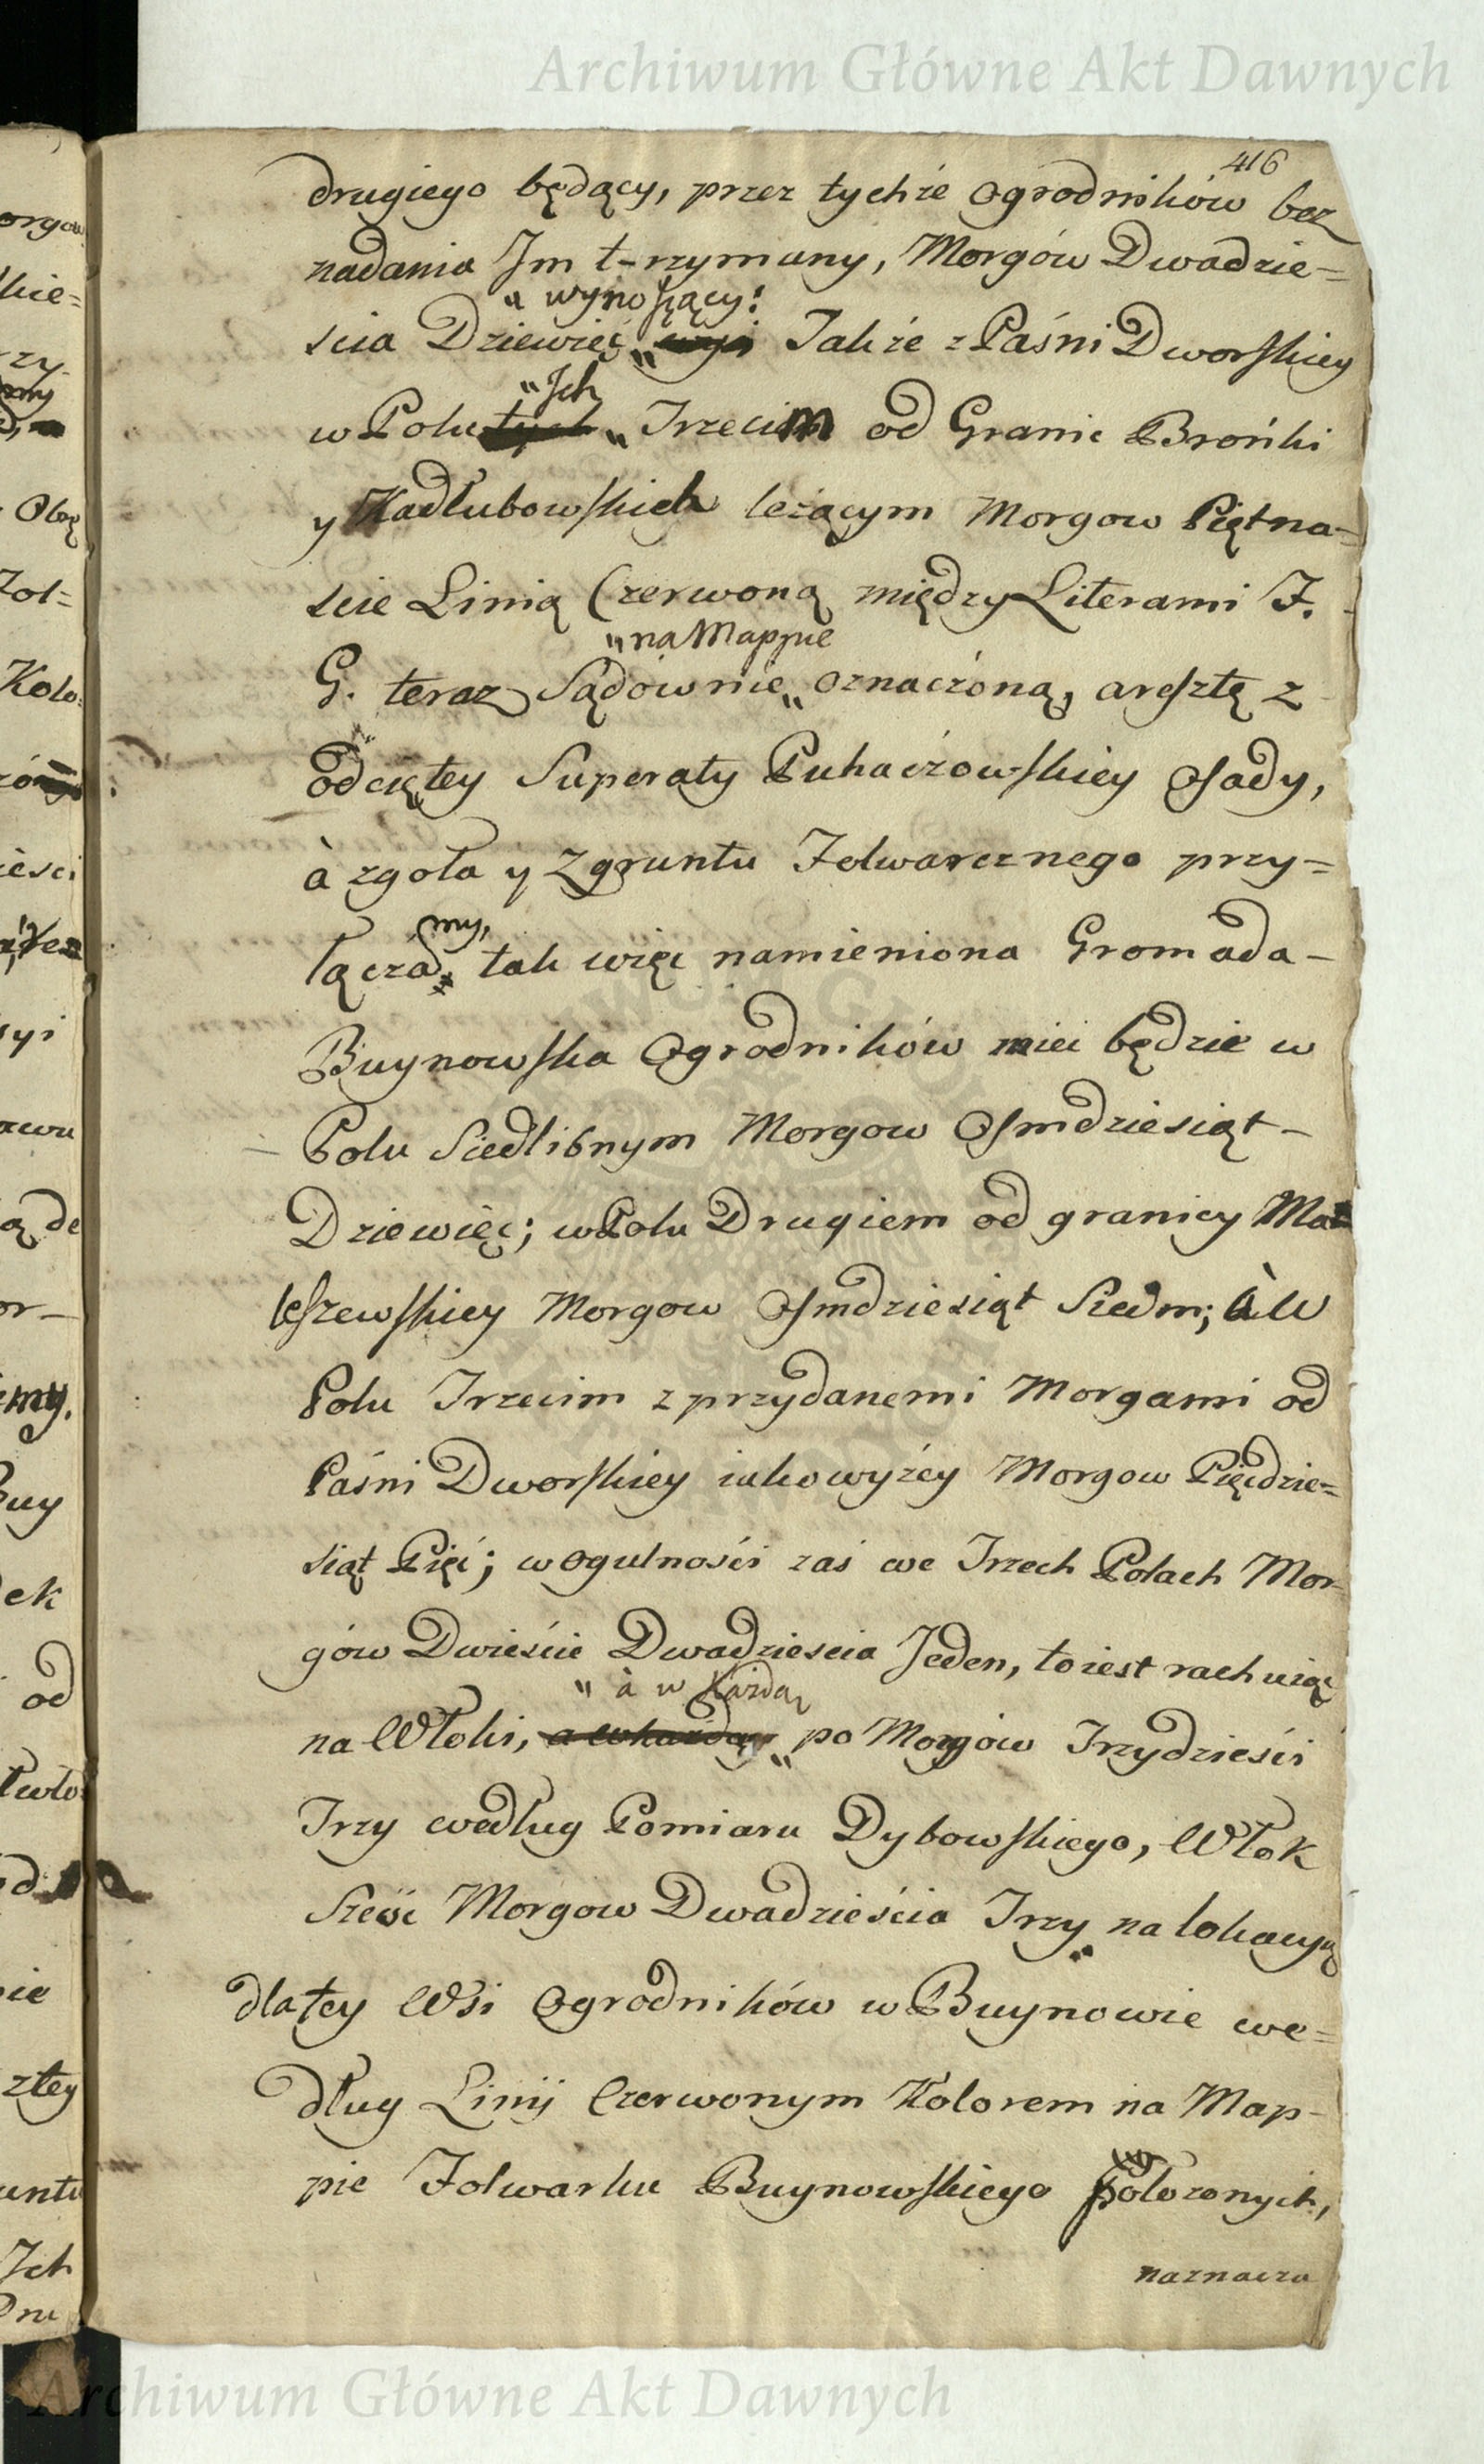 Archiwum Główne Akt Dawnych
416
drugiego będący, przez tychże Ogrodników bez
nadania Im t-rzymany, Morgów Dwadzie=
" wynoszący:
scia Dziewięć " wyi Takze z Paśni Dworskiey
" Ich
w Polu tych " Trzecim od Granic Brońki
y Kadłubowskich leżącym Morgow Piętna=
scie Linią Czerwoną między Literami F.
" na Mappie
G. teraz Sądownie " oznaczoną, aresztę z
odciętey Superaty Puhaczowskiey Osady,
à zgoła y z gruntu Folwarcznego przy=
my,
łącza tak więc namieniona Gromada-
Buynowska Ogrodników mieć będzie w
Polu Siedlibnym Morgow Osmdziesiąt-
Dziewięć; w Polu Drugiem od granicy Ma
leszewskiey Morgow Osmdziesiąt Siedm; à W
Polu Trzecim z przydanemi Morgami od
Paśni Dworskiey iako wyżey Morgow Pięcdzie=
siąt Pięć; w ogulności zaś we Trzech Polach Mor-
gów Dwieście Dwadziescia Jeden, to iest rachuiąc
" à w Każdą
na Włoki, a w każdą " po Morgów Trzydzieści
Trzy według Pomiaru Dybowskiego, Włok
Sześć Morgow Dwadzieścia Trzy na lokacyą
dla tey Wsi Ogrodników w Buynowie we=
dług Linij Czerwonym Kolorem na Map-
pie Folwarku Buynowskiego Położonych,
naznacza
Archiwum Główne Akt Dawnych